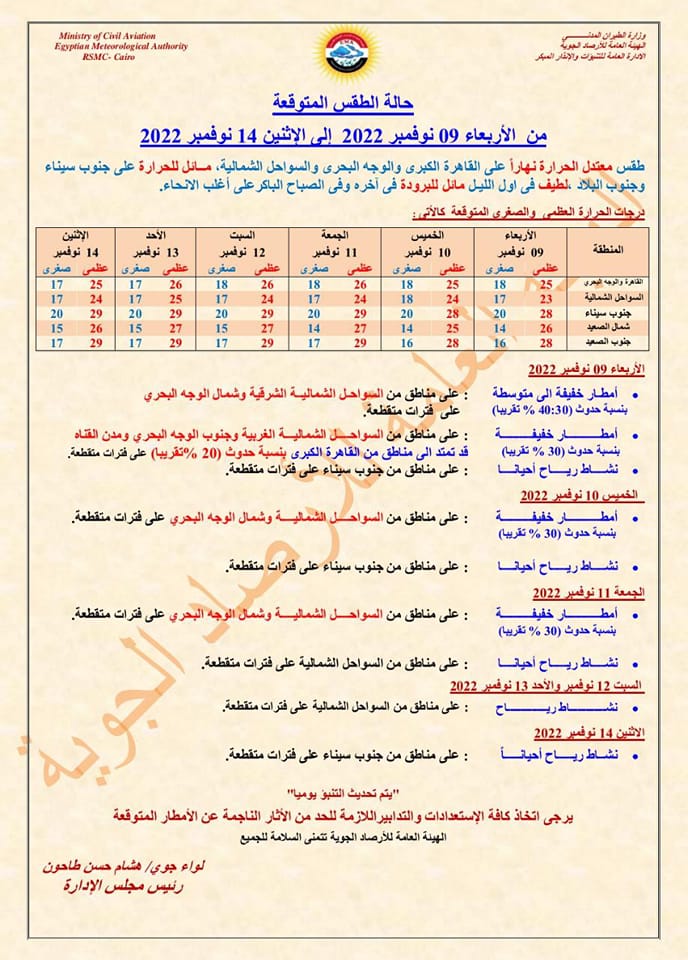 Ministry of Civil Aviation
Egyptian Meteorological Authority
RSMC- Cairo
وزارة الطيران المدنـــــــــي
الهيئة العامة للأرصاد الجوية
الادارة العامة للتنبؤات والإنذار المبكر
حالة الطقس المتوقعة
من الأربعاء 09 نوفمبر 2022 إلى الإثنين 14 نوفمبر 2022
طقس معتدل الحرارة نهاراً على القاهرة الكبرى والوجه البحرى والسواحل الشمالية، مــائل للحرارة على جنوب سيناء
وجنوب البلاد ،لطيف فى اول الليـل مائل للبرودة فى آخره وفى الصباح الباكرعلى أغلب الانحاء.
درجات الحرارة العظمي والصغرى المتوقعة كالأتى:
المنطقة الأربعاء الخميس الجمعة السبت الأحد الإثنين
09 نوفمبر 10 نوفمبر 11 نوفمبر 12 نوفمبر 13 نوفمبر 14 نوفمبر
عظمى صغرى عظمى صغرى عظمى صغرى عظمى صغرى عظمى صغرى عظمى صغرى
القاهرة والوجه البحري 25 18 25 18 26 18 26 18 26 17 25 17
السواحل الشمالية 23 17 24 18 24 17 24 17 25 17 24 17
جنوب سيناء 28 20 28 20 29 20 29 20 29 20 29 20
شمال الصعيد 26 14 25 14 27 14 27 15 27 15 26 15
جنوب الصعيد 28 16 28 16 29 17 29 17 29 17 29 17
الأربعاء 09 نوفمبر 2022
• أمطـار خفيفة الى متوسطة : على مناطق من السواحـل الشماليـة الشرقية وشمال الوجه البحري
بنسبة حدوث (40:30 % تقريبا) على فترات متقطعة.
• أمطــار خفيفــــــة : على مناطق من السواحـل الشماليــة الغربية وجنوب الوجه البحري ومدن القناه
بنسبة حدوث (30 % تقريبا) قد تمتد الى مناطق من القاهرة الكبرى بنسبة حدوث (20 %تقريبا) على فترات متقطعة.
• نشــاط ريــاح أحيانــا : على مناطق من جنوب سيناء على فترات متقطعة.
الخميس 10 نوفمبر 2022
• أمطــار خفيفــــــة : على مناطق من السواحــل الشماليــة وشمال الوجه البحري على فترات متقطعة.
بنسبة حدوث (30 % تقريبا)
• نشــاط ريــاح أحيانــا : على مناطق من جنوب سيناء على فترات متقطعة.
الجمعة 11 نوفمبر 2022
• أمطــار خفيفــــــة : على مناطق من السواحــل الشماليــة وشمال الوجه البحري على فترات متقطعة.
بنسبة حدوث (30 % تقريبا)
• نشــاط ريــاح أحيانــا : على مناطق من السواحل الشمالية على فترات متقطعة.
السبت 12 نوفمبر والأحد 13 نوفمبر 2022
• نشــــــاط ريـــــاح : على مناطق من السواحل الشمالية على فترات متقطعة.
الاثنين 14 نوفمبر 2022
• نشــاط ريــاح أحيانــاً : على مناطق من جنوب سيناء على فترات متقطعة.
"يتم تحديث التنبؤ يوميا"
يرجى اتخاذ كافة الإستعدادات والتدابيراللازمة للحد من الأثار الناجمة عن الأمطار المتوقعة
الهيئة العامة للأرصاد الجوية تتمنى السلامة للجميع
لواء جوي/ هشام حسن طاحون
رئيس مجلس الإدارة
الهيئة العامة للأرصاد الجوية